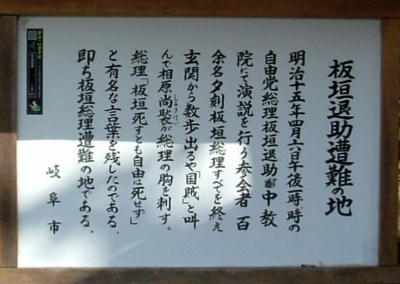 板垣退助遭難の地
明治十五年四月六日午後一時時の
自由党総理板垣退助 中教
院にて演説を行う参会者 百
余名夕刻板垣総理すべてを終え
玄関から数歩出るや「国賊」と叫
んで相原尚褧が総理の胸を刺す。
総理「板垣死すとも自由は死せず」
と有名な言葉を残したのである。
即ち板垣総理遭難の地である。
岐阜市